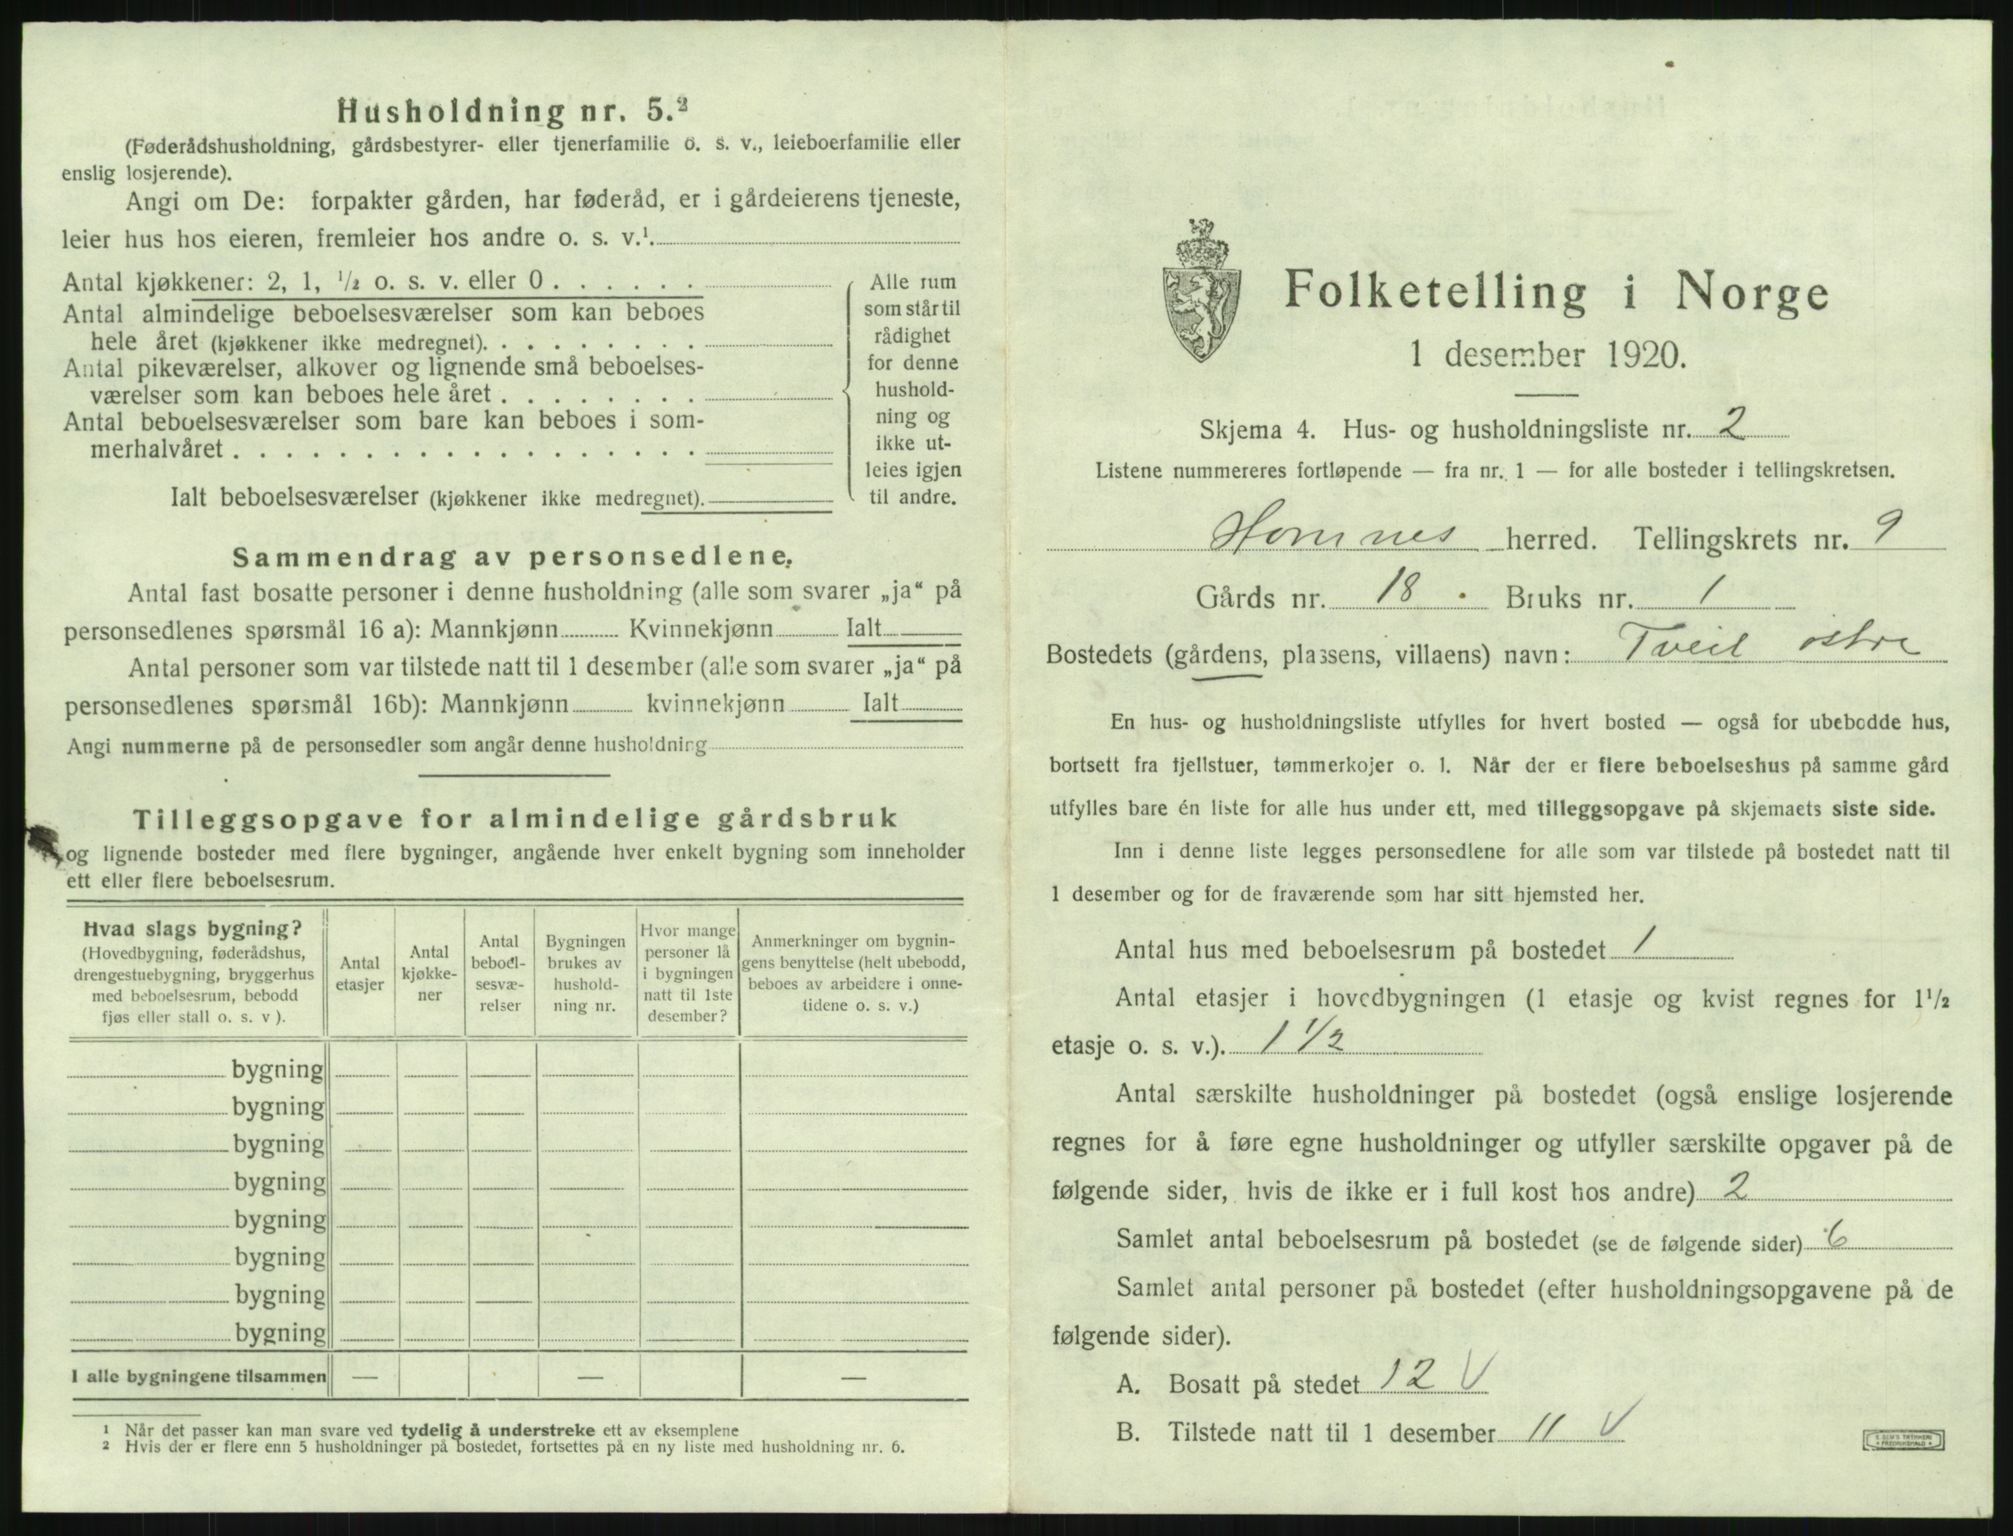 Husholdning nr. 5.²
(Føderådshusholdning, gårdsbestyrer- eller tjenerfamilie o. s. v., leieboerfamilie eller
enslig losjerende).
Angi om De: forpakter gården, har føderåd, er i gårdeierens tjeneste,
leier hus hos eieren, fremleier hos andre o. s. v.¹.
Antal kjøkkener: 2, 1, ½ o. s. v. eller 0
Antal almindelige beboelsesværelser som kan beboes
hele året (kjøkkener ikke medregnet).
Antal pikeværelser, alkover og lignende små beboelses-
værelser som kan beboes hele året
Antal beboelsesværelser som bare kan beboes i som-
merhalvåret
Ialt beboelsesværelser (kjøkkener ikke medregnet).
Alle rum
som står til
rådighet
for denne
hushold-
ning og
ikke ut-
leies igjen
til andre.
Sammendrag av personsedlene.
Antal fast bosatte personer i denne husholdning (alle som svarer „ja“ på
personsedlenes spørsmål 16 a): Mannkjønn Kvinnekjønn Ialt
Antal personer som var tilstede natt til 1 desember (alle som svarer „ja“ på
personsedlenes spørsmål 16b): Mannkjønn kvinnekjønn Ialt
Angi nummerne på de personsedler som angår denne husholdning
Tilleggsopgave for almindelige gårdsbruk
og lignende bosteder med flere bygninger, angående hver enkelt bygning som inneholder
ett eller flere beboelsesrum.
Hvad slags bygning?
(Hovedbygning, føderådshus,
drengestuebygning, bryggerhus
med beboelsesrum, bebodd
fjøs eller stall o. s. v ).
Antal
etasjer
Antal
kjøkke-
ner
Antal
beboel-
sesvæ-
relser
Bygningen
brukes av
hushold-
ning nr.
Hvor mange
personer lå
i bygningen
natt til 1ste
desember?
Anmerkninger om bygnin-
gens benyttelse (helt ubebodd,
beboes av arbeidere i onne-
tidene o. s. v.)
bygning
bygning
bygning
bygning
bygning
bygning
bygning
bygning
I alle bygningene tilsammen — — —
¹ Når det passer kan man svare ved tydelig å understreke ett av eksemplene
² Hvis der er flere enn 5 husholdninger på bostedet, fortsettes på en ny liste med husholdning nr. 6.
Folketelling i Norge
1 desember 1920.
Skjema 4. Hus- og husholdningsliste nr. 2
Listene nummereres fortløpende — fra nr. 1 — for alle bosteder i tellingskretsen.
Hornnes herred. Tellingskrets nr. 9
Gårds nr. 18 Bruks nr. 1
Bostedets (gårdens, plassens, villaens) navn: Tveit østre
En hus- og husholdningsliste utfylles for hvert bosted — også for ubebodde hus,
bortsett fra fjellstuer, tømmerkojer o. l. Når der er flere beboelseshus på samme gård
utfylles bare én liste for alle hus under ett, med tilleggsopgave på skjemaets siste side.
Inn i denne liste legges personsedlene for alle som var tilstede på bostedet natt til
1 desember og for de fraværende som har sitt hjemsted her.
Antal hus med beboelsesrum på bostedet 1
Antal etasjer i hovedbygningen (1 etasje og kvist regnes for 1½
etasje o. s. v.). 1 1/2
Antal særskilte husholdninger på bostedet (også enslige losjerende
regnes for å føre egne husholdninger og utfyller særskilte opgaver på de
følgende sider, hvis de ikke er i full kost hos andre) 2
Samlet antal beboelsesrum på bostedet (se de følgende sider) 6
Samlet antal personer på bostedet (efter husholdningsopgavene på de
følgende sider).
A. Bosatt på stedet 12 V
B. Tilstede natt til 1 desember 11 V